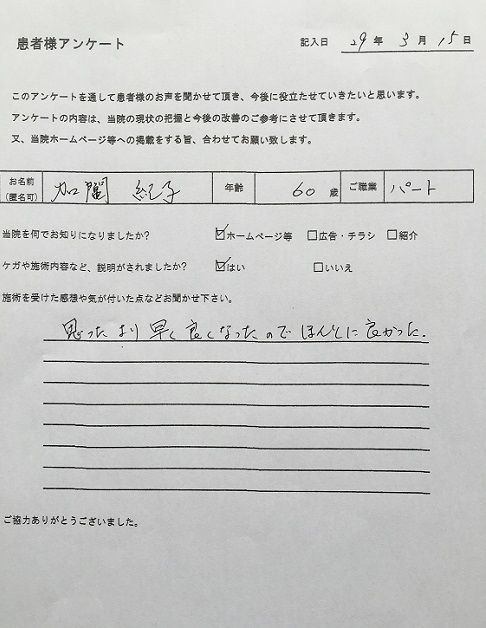 患者様アンケート
記入日 29年 3月 15日
このアンケートを通して患者様のお声を聞かせて頂き、今後に役立たせていきたいと思います。
アンケートの内容は、当院の現状の把握と今後の改善のご参考にさせて頂きます。
又、当院ホームページ等への掲載をする旨、合わせてお願い致します。
お名前 加 紀子 年齢 60 歳 ご職業 パート
(匿名可)
当院を何でお知りになりましたか? ☑ホームページ等 □広告・チラシ □紹介
ケガや施術内容など、説明がされましたか? ☑はい □いいえ
施術を受けた感想や気が付いた点などお聞かせ下さい。
思ったより早く良くなったのでほんとに良かった.
ご協力ありがとうございました。